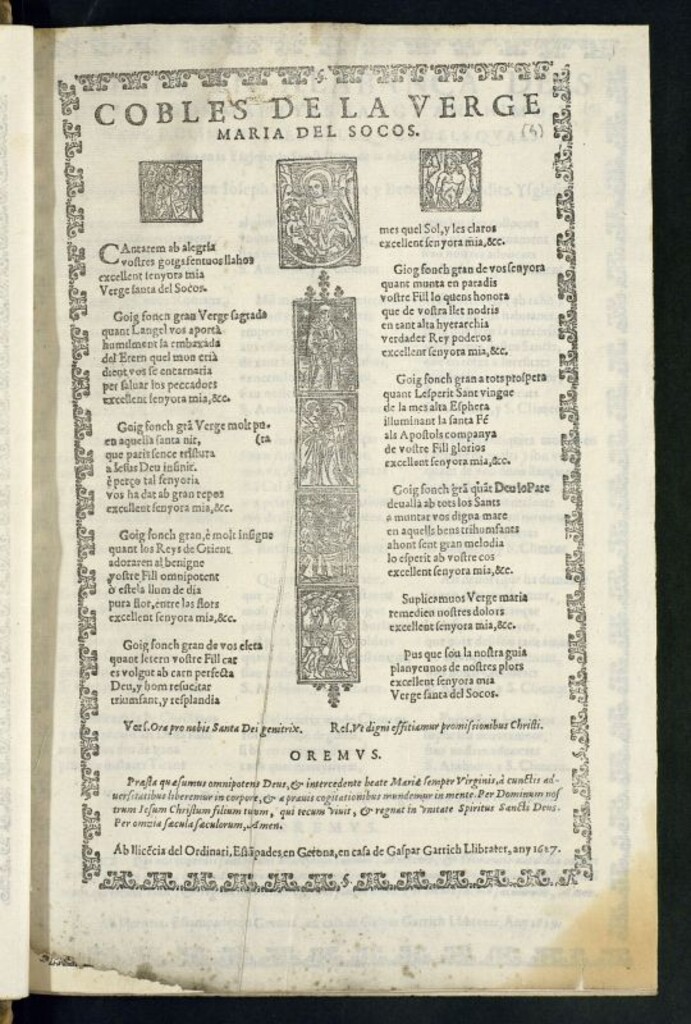 COBLES DE LA VERGE
MARIA DEL SOCOS.
(4)
CAntarem ab alegria
vostres gotgs sentuos llahos
excellent senyora mia
Verge santa del Socos.
Goig fonch gran Verge sagrada
quant Langel vos aportà
humilment la embaxada
del Etern quel mon crià
dient vos se encarnaria
per saluar los peccadors
excellent senyora mia, &c.
Goig fonch grã Verge molt pu-
en aquella santa nit, (ra
que paris sence tristura
a Iesus Deu infinit.
è perço tal senyoria
vos ha dat ab gran repos
excellent senyora mia, &c.
Goig fonch gran, è molt insigne
quant los Reys de Orient
adoraren al benigne
vostre Fill omnipotent
ò estela llum de dia
pura flor, entre las flors
excellent senyora mia, &c.
Goig fonch gran de vos eleta
quant letern vostre Fill car
es volgut ab carn perfecta
Deu, y hom resucitar
triumfant, y resplandia
mes quel Sol, y les claros
excellent senyora mia, &c.
Giog fonch gran de vos senyora
quant munta en paradis
vostre Fill lo quens honora
que de vostra llet nodris
en tant alta hyerarchia
verdader Rey poderos
excellent senyora mia, &c.
Goig fonch gran a tots prospera
quant Lesperit Sant vingue
de la mes alta Esphera
illuminant la santa Fé
als Apostols companya
de vostre Fill glorios
excellent senyora mia, &c.
Goig fonch grã quãt Deu lo Pare
deuallà ab tots los Sants
a muntar vos digna mare
en aquells bens trihumfants
ahont sent gran melodia
lo esperit ab vostre cos
excellent senyora mia, &c.
Suplicamuos Verge maria
remedieu nostres dolors
excellent senyora mia, &c.
Pus que sou la nostra guia
planyeunos de nostres plors
excellent senyora mia
Verge santa del Socos.
Vers. Ora pro nobis Santa Dei genitrix. Res. Vt digni effitiamur promissionibus Christi.
OREMVS.
Præsta quæsumus omnipotens Deus, & intercedente beate Mariæ semper Virginis, à cunctis ad-
uersitatibus liberemur in corpore, & a prauis cogitationibus mundemur in mente. Per Dominum nos
trum Iesum Christum filium tuum, qui tecum viuit, & regnat in vnitate Spiritus Sancti Deus.
Per omnia sæcula sæculorum, Amen.
Ab llicẽcia del Ordinari, Estãpades, en Gerona, en casa de Gaspar Garrich Llibrater, any 1627.